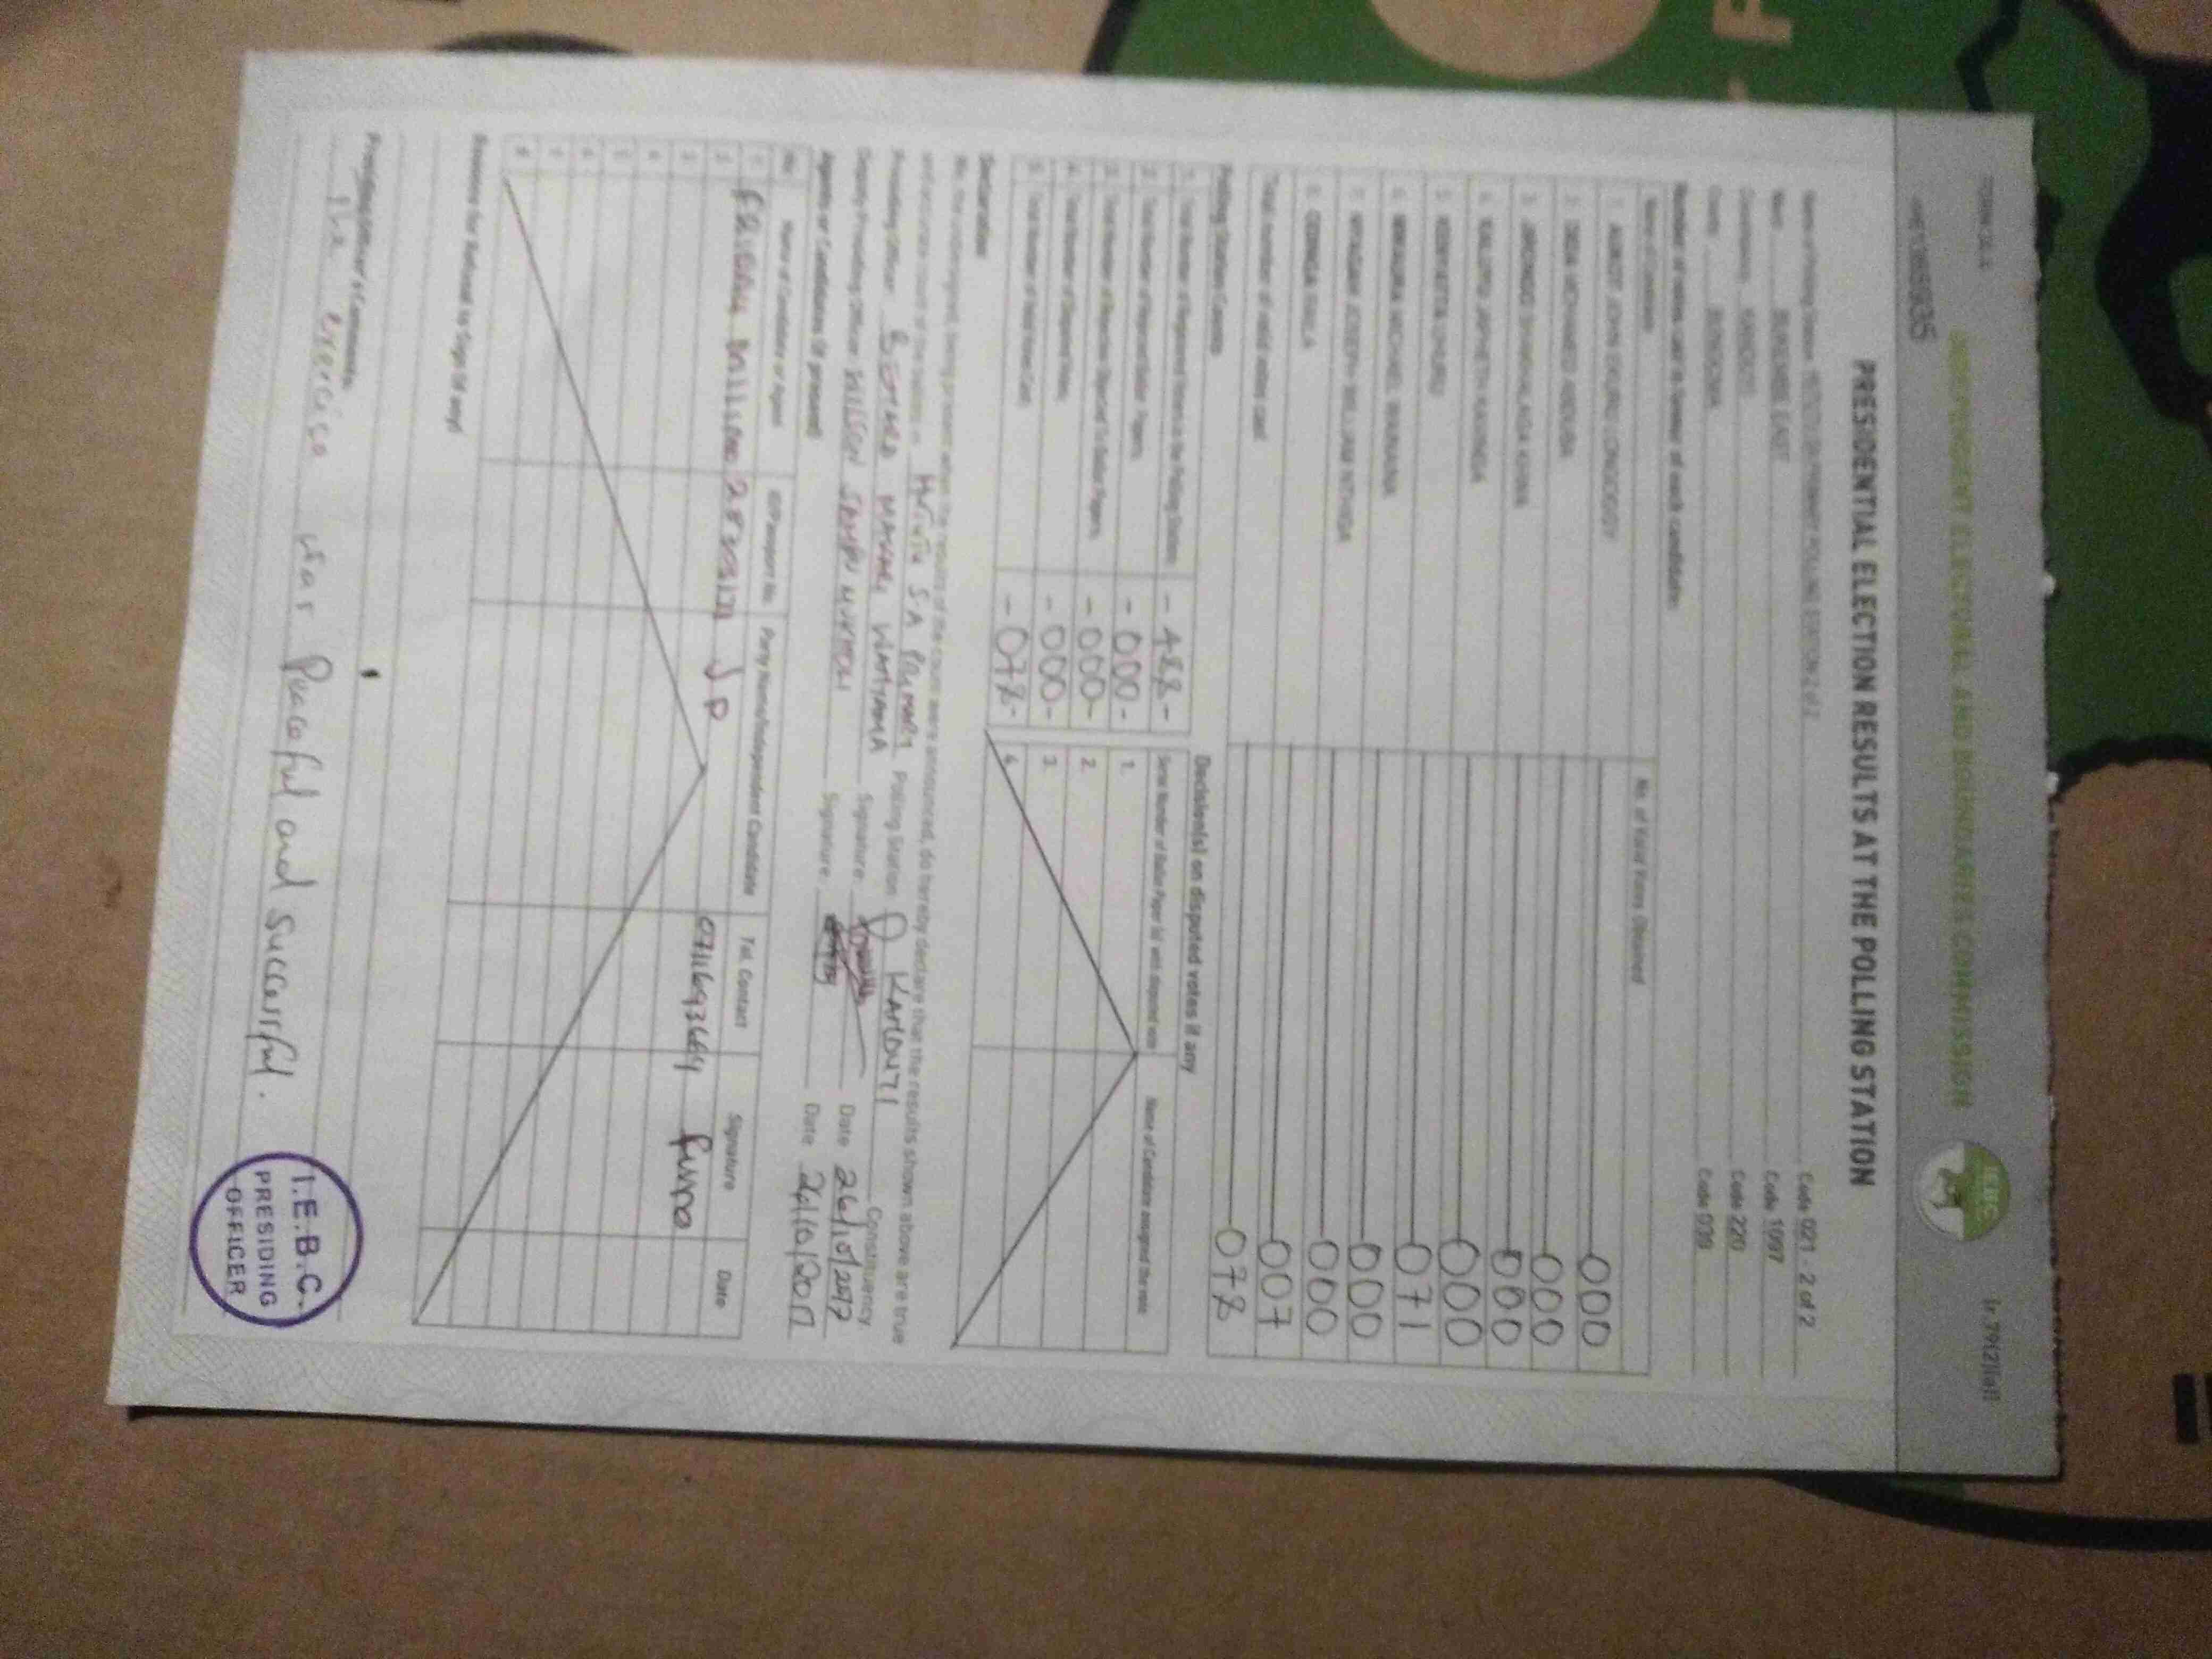 FORM 34A
INDEPENDENT ELECTORAL AND BOUNDARIES COMMISSION
IEBC
PRESIDENTIAL ELECTION RESULTS AT THE POLLING STATION
Name of Polling Station POLLING STATION 2 of 2 Code 021 - 2 of 2
Ward EAST Code 1097
Constituency Code 220
County BUNGOMA Code 039
Number of votes cast in favour of each candidate:
Name of Candidate No. of Valid Votes Obtained
1. AUKOT JOHN EKURU LONGOGGY 000
2. DIDA MOHAMED ABDUBA 000
3. JIRONGO SHAKHALAGA KHWA 000
4. KALUYU JAPHETH KAVINGA 000
5. KENYATTA UHURU 071
6. WAINAINA MICHAEL MWAURA 000
7. NYAGAH JOSEPH WILLIAM NTHIGA 000
8. ODINGA RAILA 007
Total number of valid votes cast 078
Polling Station Counts
1. Total Number of Registered Voters in the Polling Station - 488 -
2. Total Number of Rejected Ballot Papers - 000 -
3. Total Number of Rejection Objected To Ballot Papers - 000 -
4. Total Number of Disputed Votes - 000 -
5. Total Number of Valid Votes Cast - 078 -
Decision(s) on disputed votes if any
Serial Number of Ballot Paper (s) with disputed vote Name of Candidate assigned the vote
1.
2.
3.
4.
Declaration
We, the undersigned, being present when the results of the count were announced, do hereby declare that the results shown above are true
and accurate count of the ballots in S.A PRIMARY Polling Station KANDUYI Constituency.
Presiding Officer WANYAMA Signature Date 26/10/2017
Deputy Presiding Officer WILSON Signature Date 26/10/2017
Agents or Candidates (if present)
No. Name of Candidate or Agent ID/Passport No. Party Name/Independent Candidate Tel. Contact Signature Date
1 JP 0711693664
2
3
4
5
6
7
8
Reasons for Refusal to Sign (if any)
Presiding Officer's Comments:
The exercise was Peaceful and successful.
I.E.B.C.
PRESIDING
OFFICER